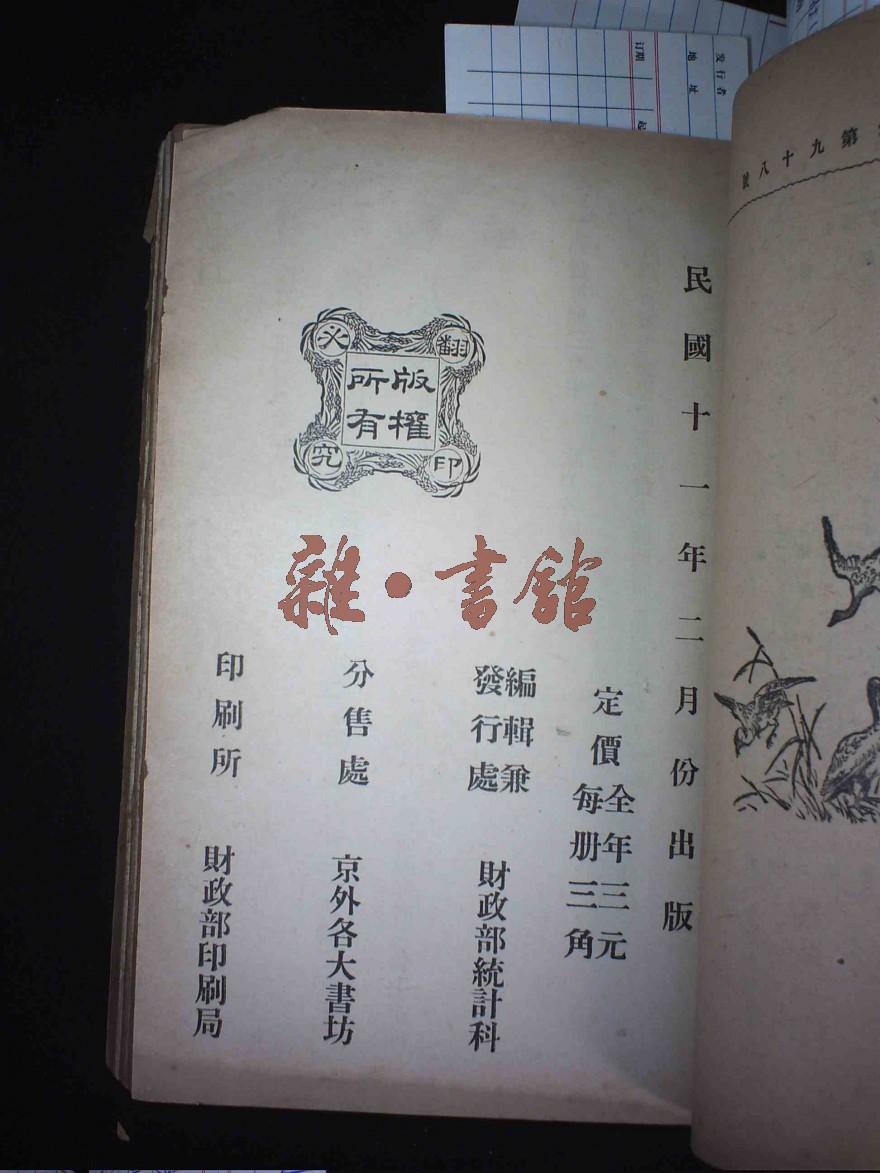 第九十八號
民國十一年二月份出版
定價
全年三元
每册三角
編輯兼
發行處
財政部統計科
分售處 京外各大書坊
印刷所 財政部印刷局
版權
所有
翻印必究
雜·書館
发行者
地址
订期
起